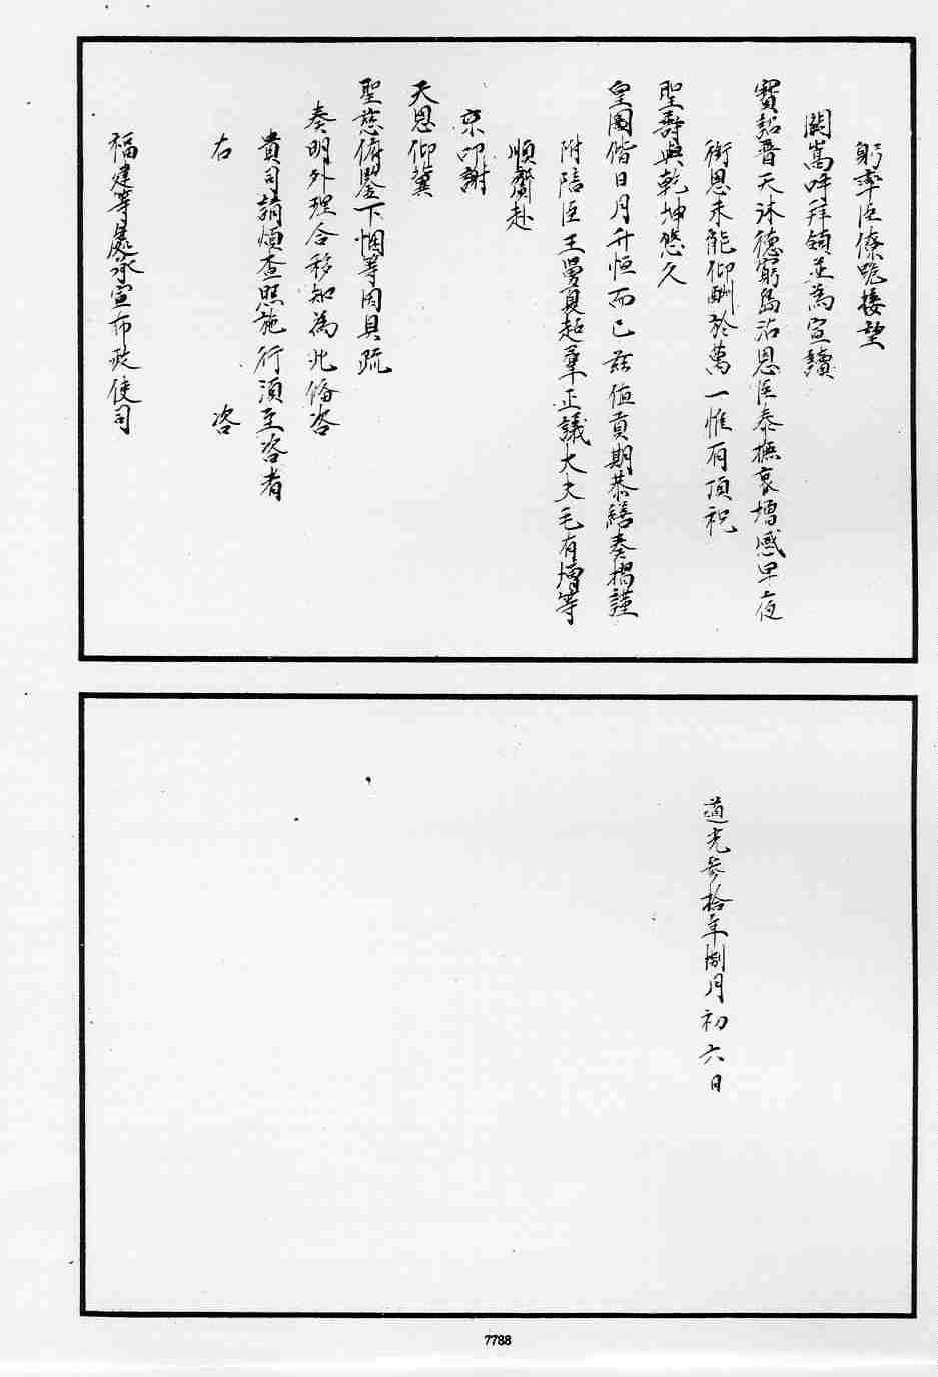 躬率臣僚跪接望
闕嵩呼拜領並為宣讀
寶詔普天沐德窮島沾恩臣泰撫衷增感早夜
銜恩未能仰酬於萬一惟有頂祝
聖壽與乾坤悠久
皇圖偕日月升恒而已茲值貢期恭繕奏摺謹
附陪臣王舅夏超羣正議大夫毛有增等
順賫赴
京叩謝
天恩仰冀
聖慈俯鑒下悃等因具疏
奏明外理合移知為此備咨
貴司請煩查照施行須至咨者
右　咨
福建等處承宣布政使司
道光參拾年捌月初六日
7788